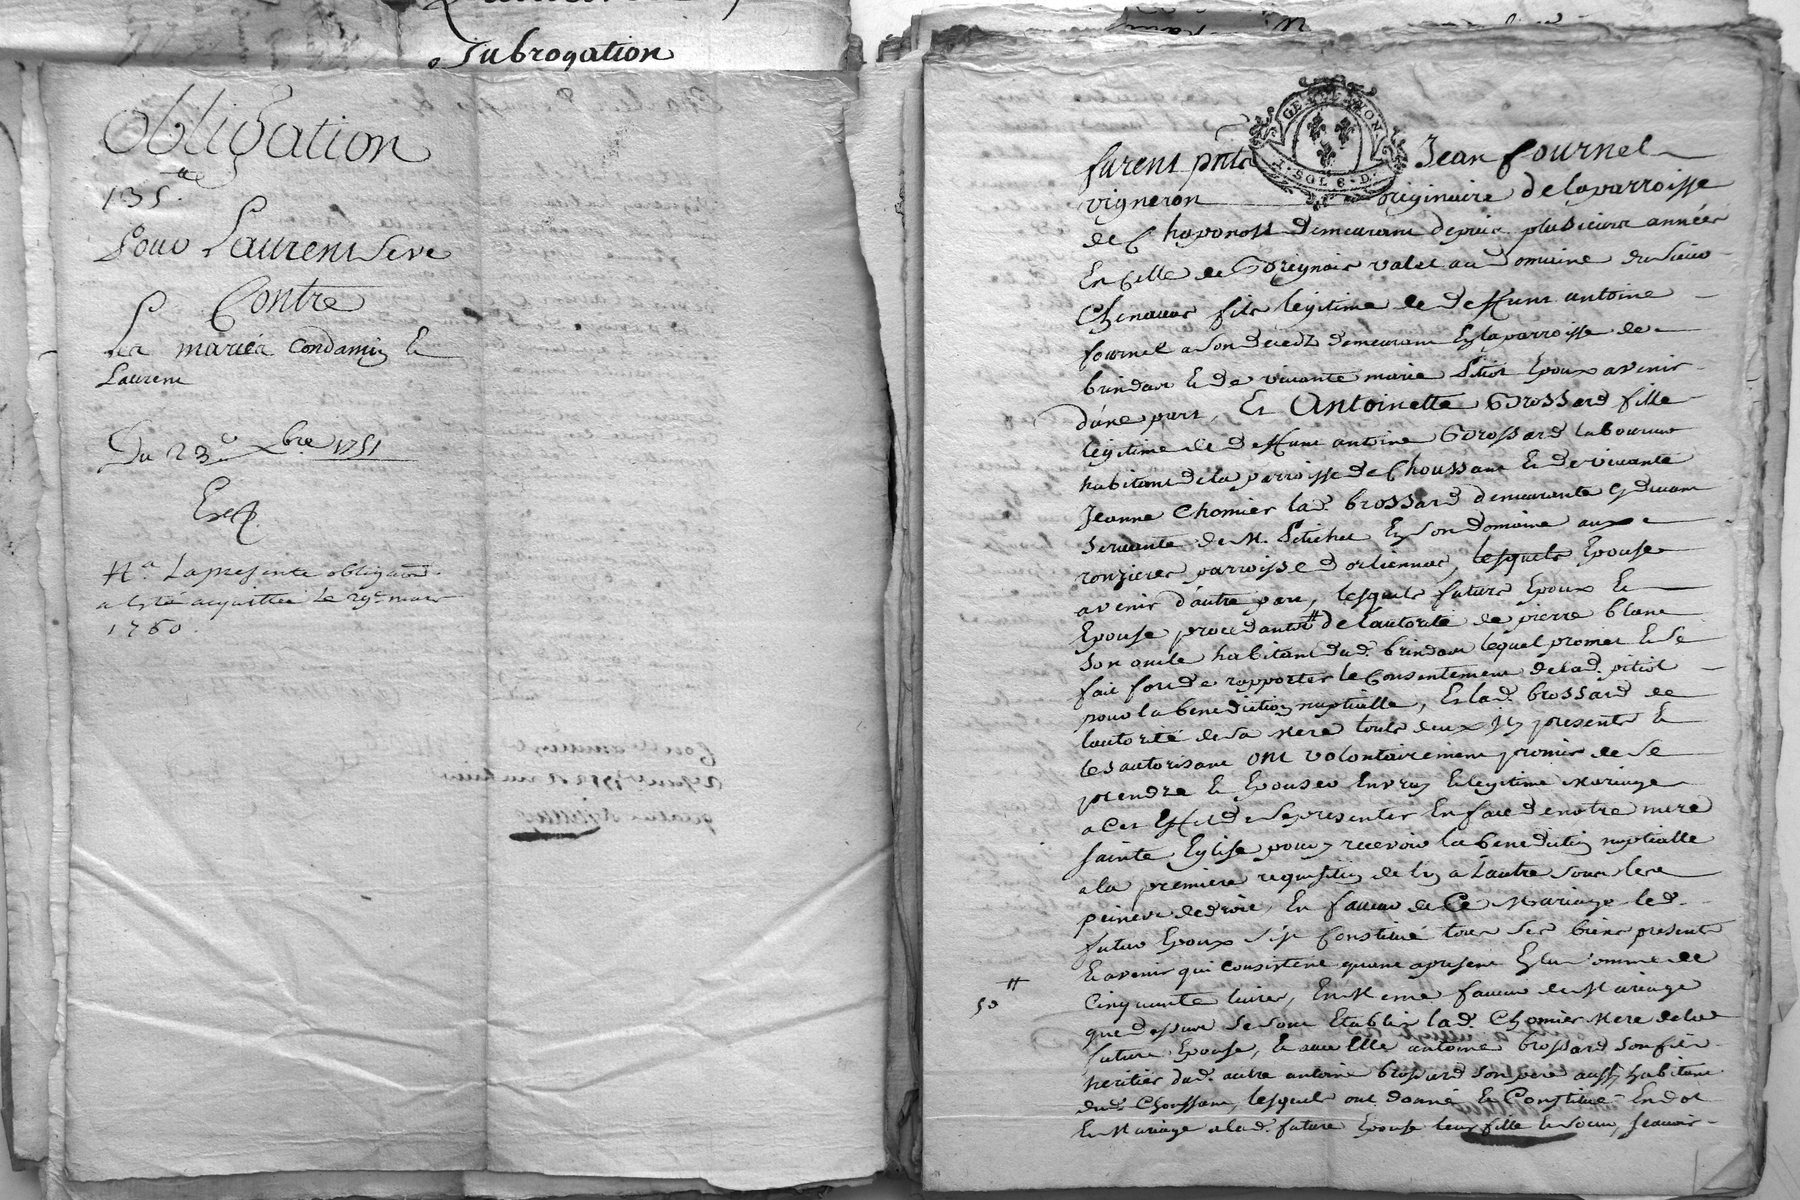 Subrogation
Obligation
135.tt
Pour Laurent Seve
Contre
Les mariés Condamin &
Laurent
Du 23e Xbre 1751
Exp.
Na. La presente obligaon.
a esté acquittée le 29e mars
1760.
GE. DE LYON.
1. SOL 8. D.
furent pnts Jean fournel
vigneron originaire de la parroisse
de Chaponost demeurant depuis plusieurs années
En celle de Grignais valet au Domaine du sieur
Chinaux fils légitime de deffunt antoine
fournel a son decedz demeurant En la parroisse de
brindas & de vivante marie Pitiot Epoux avenir
d'une part, Et Antoinette Brossard fille
légitime de deffunt antoine Brossard laboureur
habitant de la parroisse de Choussan & de vivante
Jeanne Chomier lad. brossard demeurante cy devant
servante de M. Pitichet En son domaine aux
ronzieres parroisse d'orliennas, lesquels Epouse
avenir d'autre part, lesquels futurs Epoux &
Epouse procedants de l'autorité de pierre blanc
son oncle habitant dud. brindas lequel promet & se
fait fort de rapporter le Consentement de lad. pitiot
pour la benediction nuptialle, Et lad. brossard de
l'autorité de sa mere touts deux Icy presents &
les autorisant ont volontairement promis de se
prendre & Epouser En vray & légitime mariage
a Cet Effet de se presenter En face de notre mere
sainte Eglise pour y recevoir la benediction nuptialle
a la premiere requisition de l'un a l'autre sous les
peines de droit, En faveur de Ce Mariage led.
futur Epoux s'est Constitué tous ses biens presents
& avenir qui consistent quant a present En la somme de
50tt
Cinquante livres, En Meme faveur de Mariage
que dessus se sont Etablis lad. Chomier Mere de la
future Epouse, & avec Elle antoine brossard son fils
heritier dud. autre antoine brossard son pere aussy habitant
dud. Choussan, lesquels ont donné & Constitué En dot
En Mariage a lad. future Epouse leur fille & soeur, scavoir